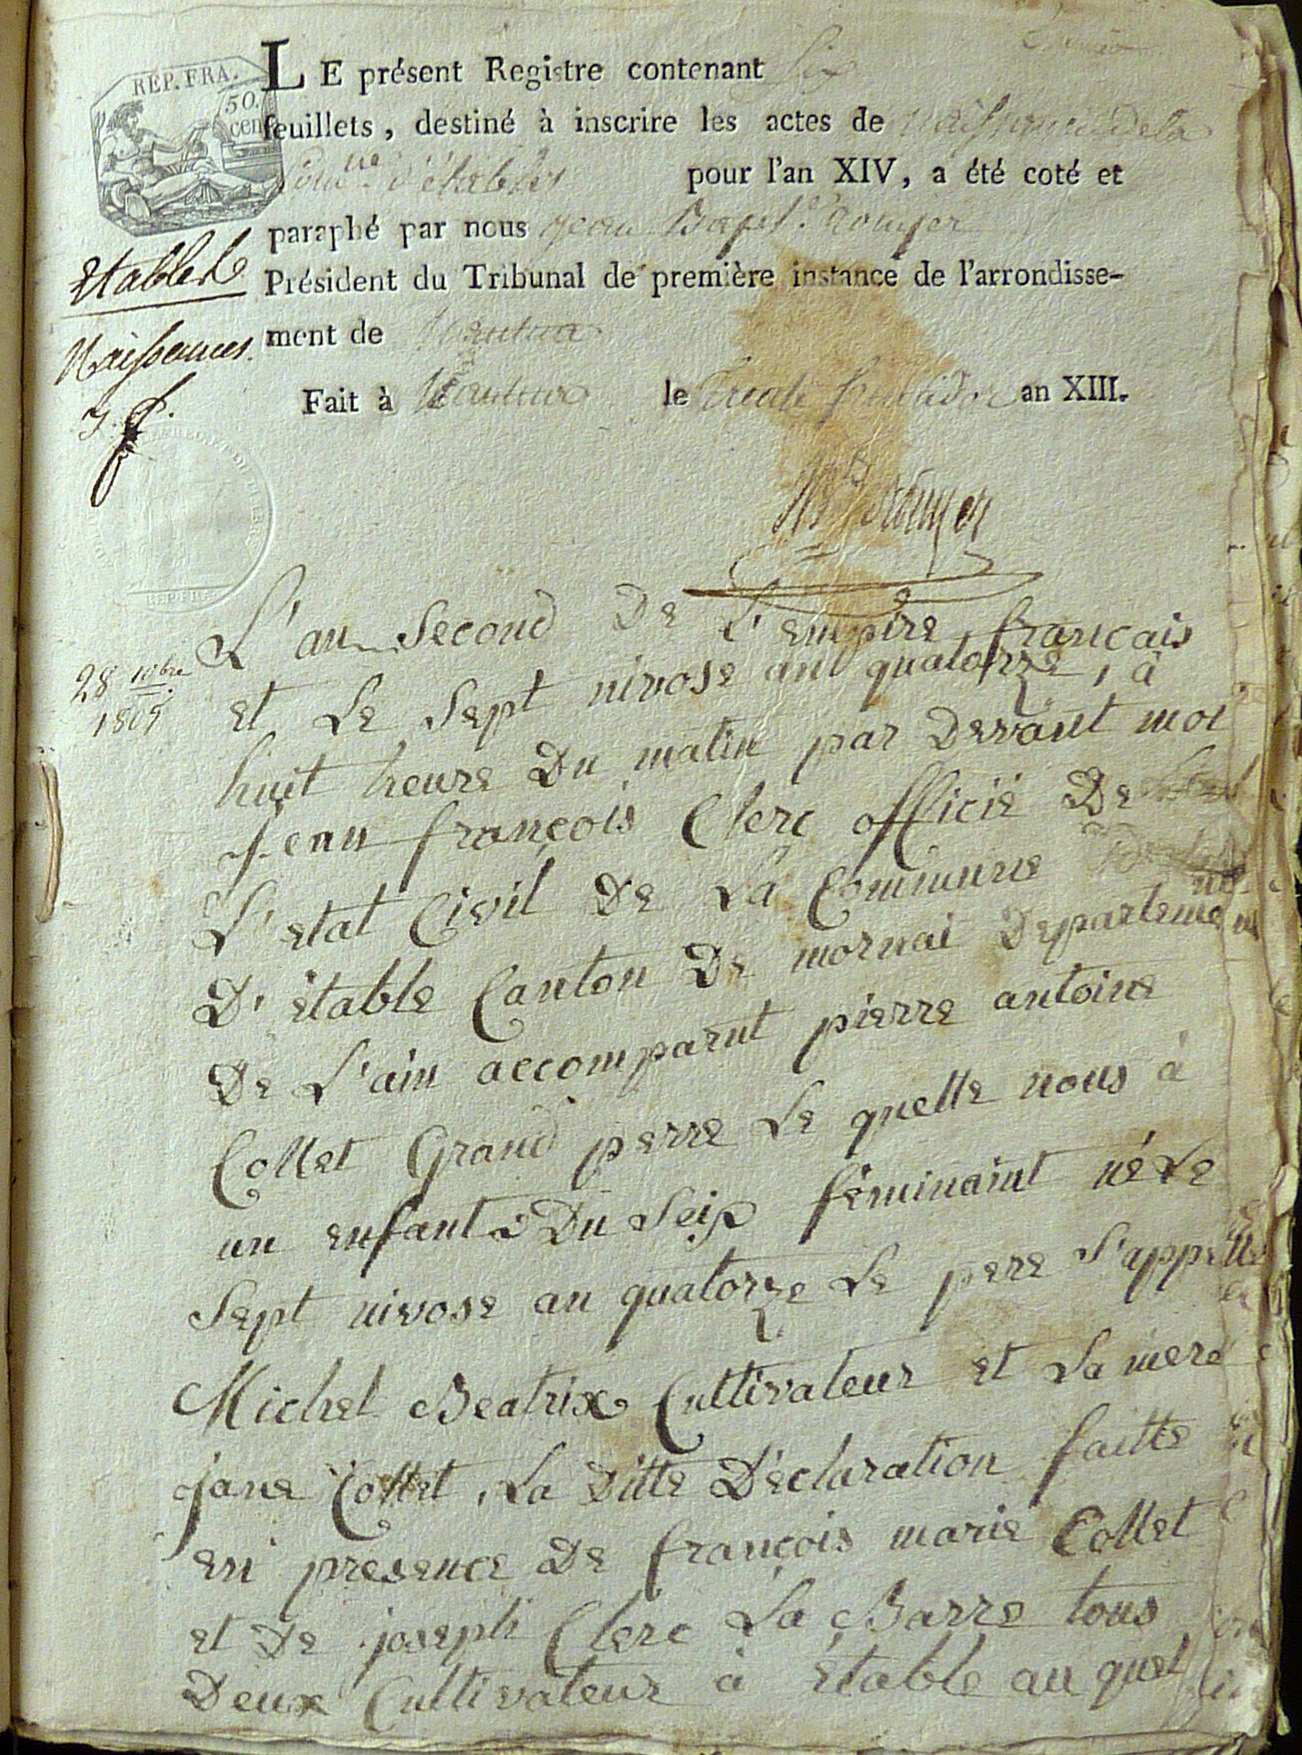 REP. FRA.
50.
cen
LE présent Registre contenant Six
feuillets, destiné à inscrire les actes de naissance de la
Comne d'étables pour l'an XIV, a été coté et
paraphé par nous jean Bapte. Rouyer
Président du Tribunal de première instance de l'arrondisse-
ment de Nantua
Fait à Nantua le trente fructidor an XIII.
Etables
Naissances.
REP. FRA.
28 10bre
1805
L'an second De L'empire français
et Le Sept nivose ant quatorze, à
huit heure Du matin par Devant moi
jean françois Clerc officié De
L'etat Civil De La Commune
D'étable Canton De mornai Departement
De L'ain accomparut pierre antoine
Collet Grand perre Le quelle nous à
un enfant Du Seix féminaint né Le
Sept nivose an quatorze Le pere S'appelle
Michel Beatrix Cultivateur et La mere
jane Collet, La Ditte Déclaration faitte
en presence De françois marie Collet
et De joseph Clerc La Barre tous
Deux Cultivateur à étable au quel